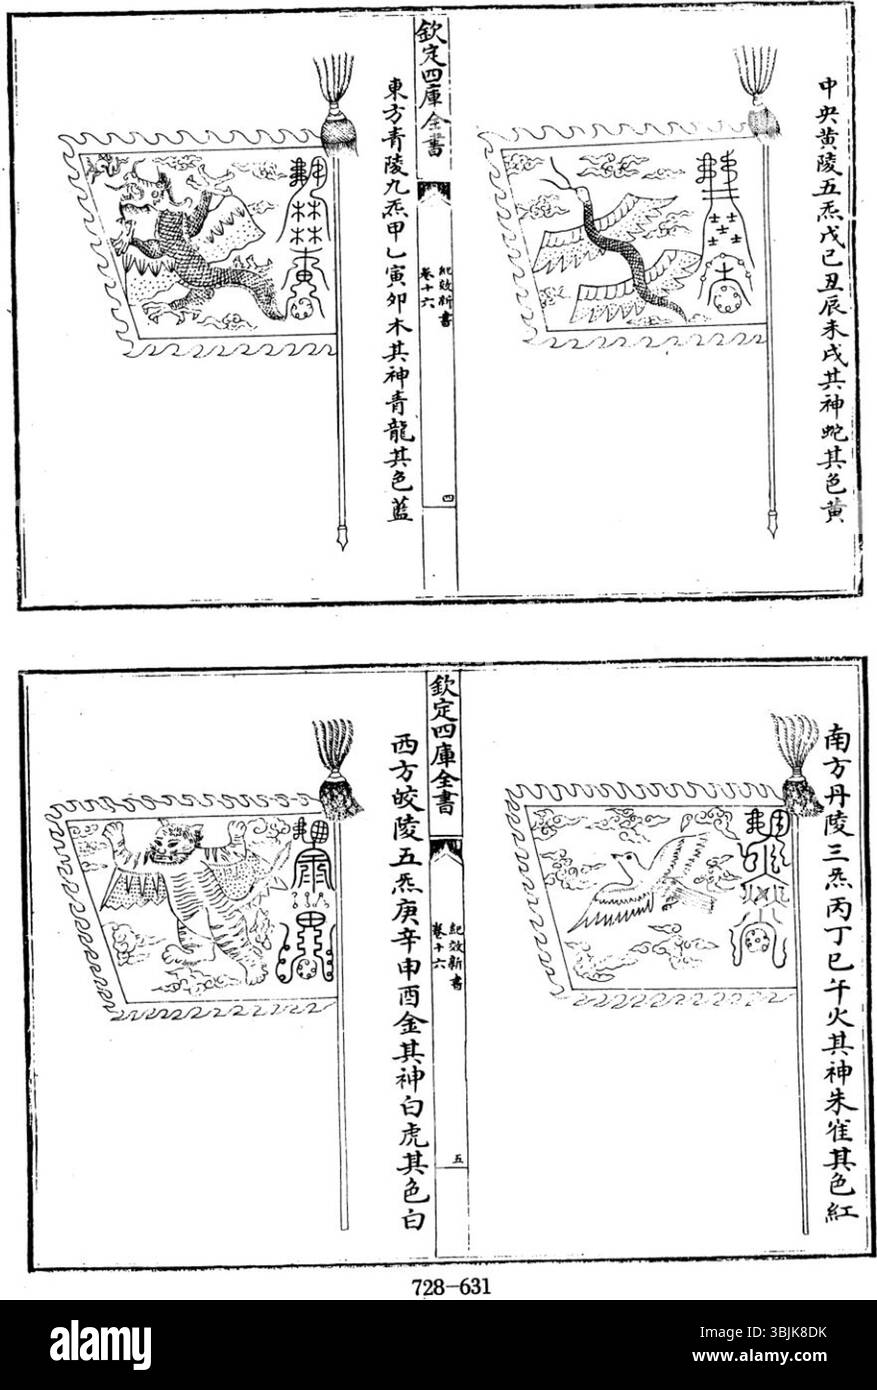 中央黄陵五炁戊己丑辰未戌其神蛇其色黄
欽定四庫全書
紀效新書
卷十六
四
東方青陵九炁甲乙寅卯木其神青龍其色藍
南方丹陵三炁丙丁巳午火其神朱雀其色紅
欽定四庫全書
紀效新書
卷十六
五
西方皎陵五炁庚辛申酉金其神白虎其色白
728-631
alamy
Image ID: 3BJK8DK
www.alamy.com